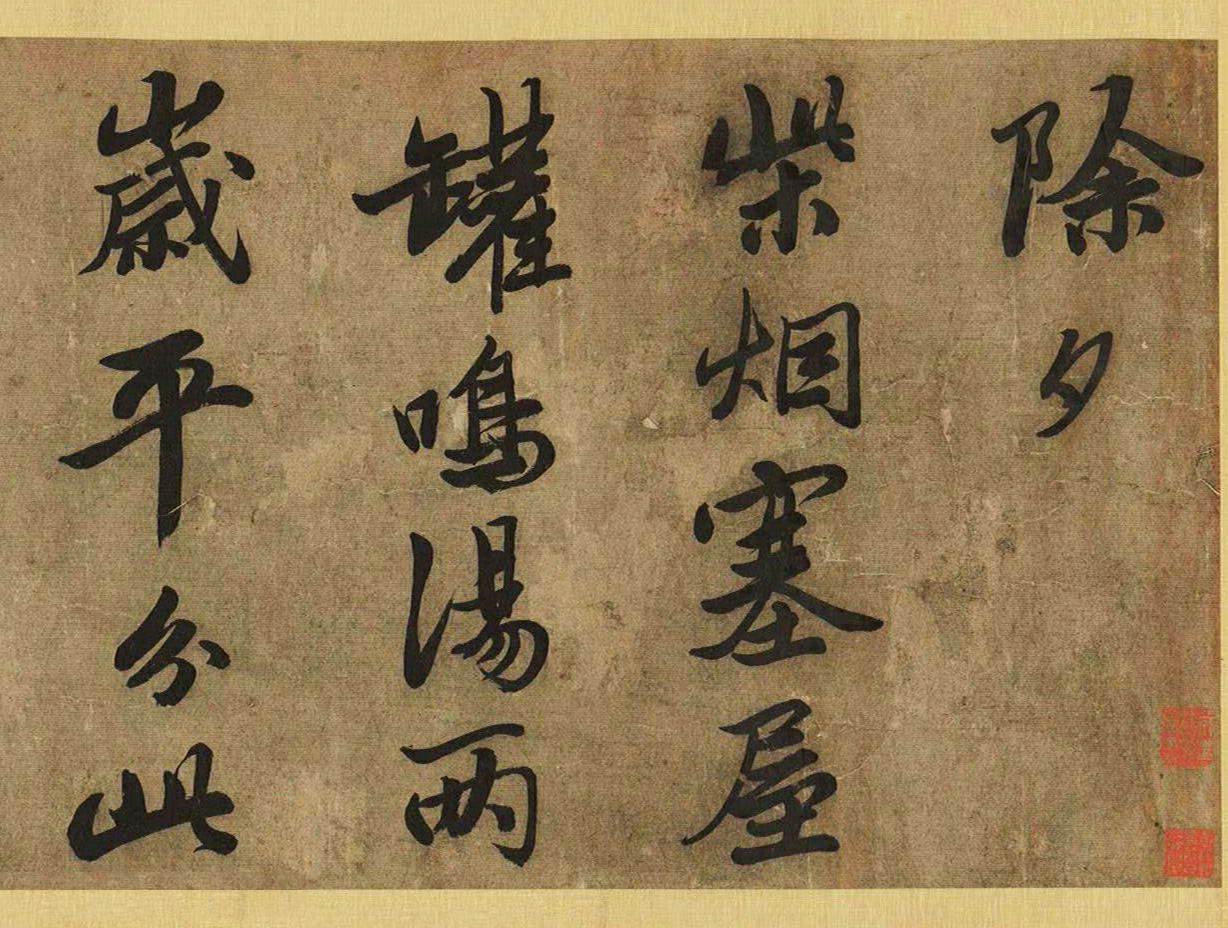 除夕
柴烟塞屋
罐鳴湯两
歳平分此